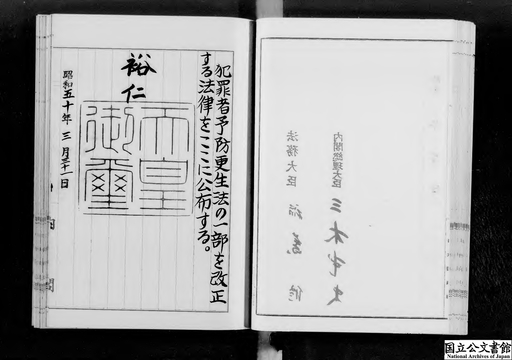 犯罪者予防更生法の一部を改正
する法律をここに公布する。
裕仁
天皇
御璽
昭和五十年三月三十一日
内閣総理大臣 三木武夫
法務大臣 稲葉修
国立公文書館
National Archives of Japan